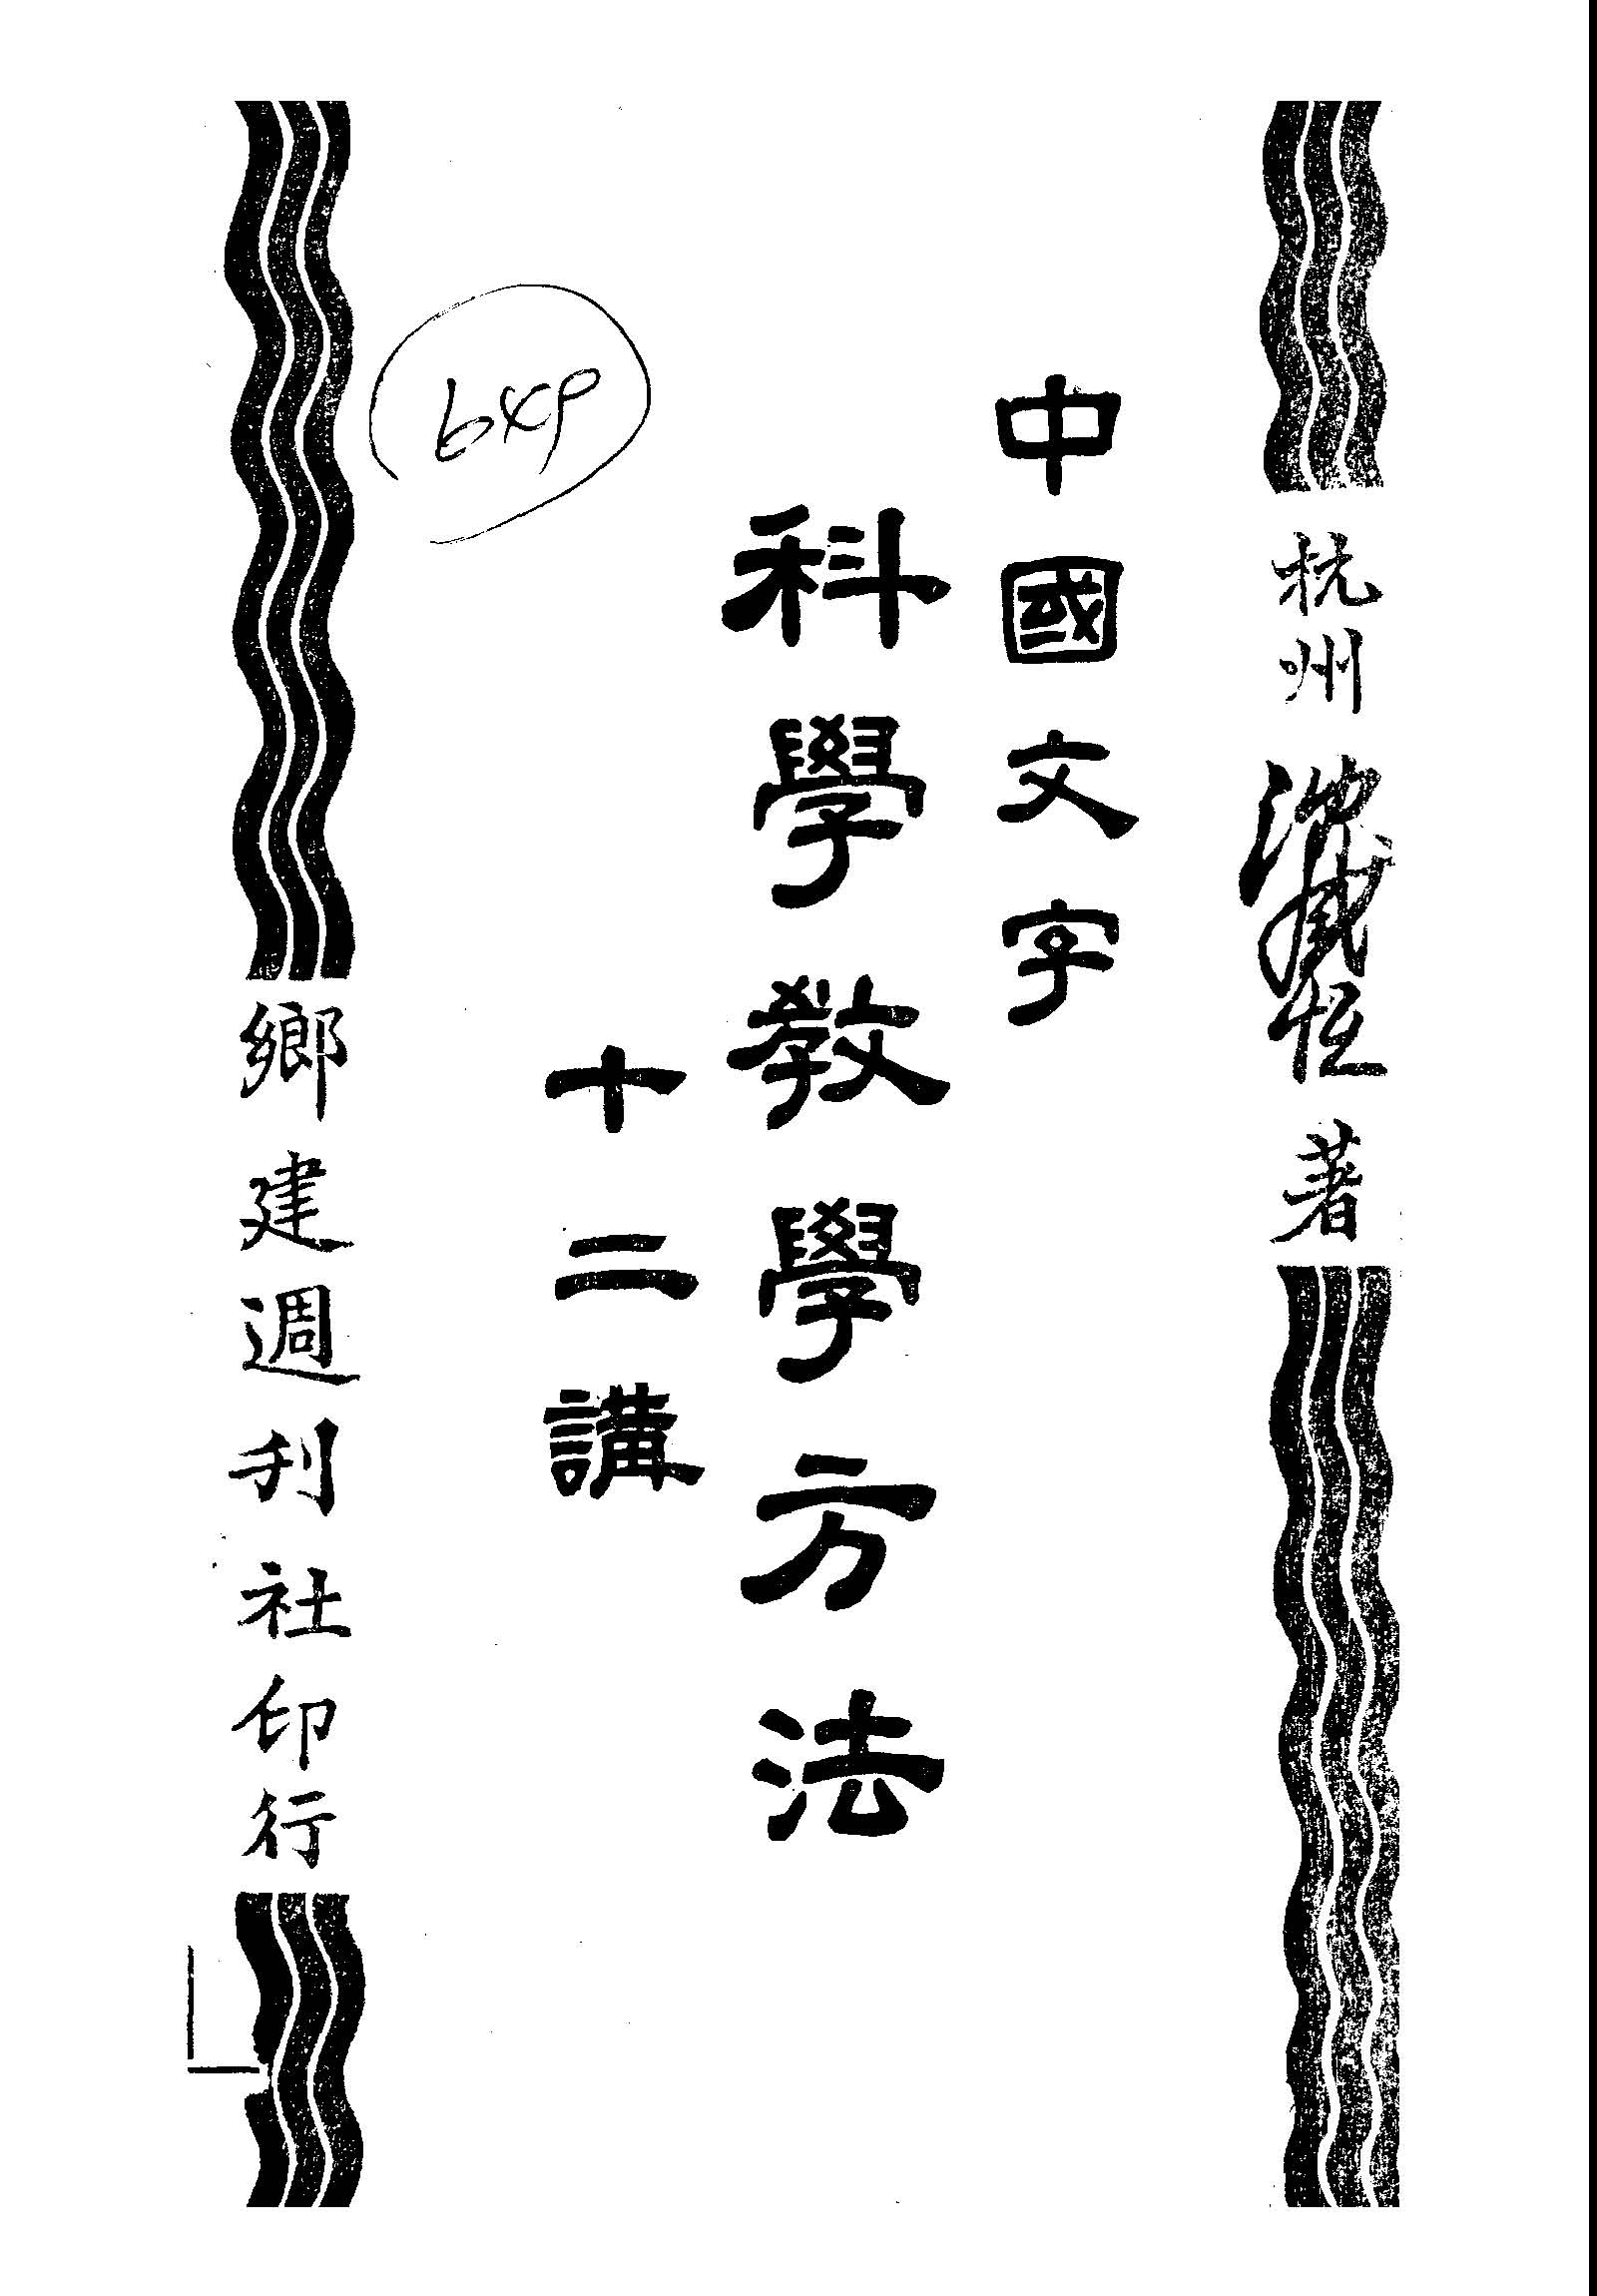 杭州 沈恒 著
中國文字
科學教學方法
十二講
鄉建週刊社印行